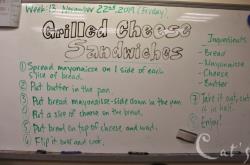 Week 13 November 22nd 2019 (Friday)
Grilled Cheese
Sandwiches
① Spread mayonnaise on 1 side of each
slice of bread.
② Put butter in the pan.
③ Put bread mayonnaise-side down in the pan.
④ Put a slice of cheese on the bread.
⑤ Put bread on top of cheese and wait.
⑥ Flip it over and cook.
Ingredients
- Bread
- Mayonnaise
- Cheese
- Butter
⑦ Take it out, cut
it in half.
⑧ Enjoy!